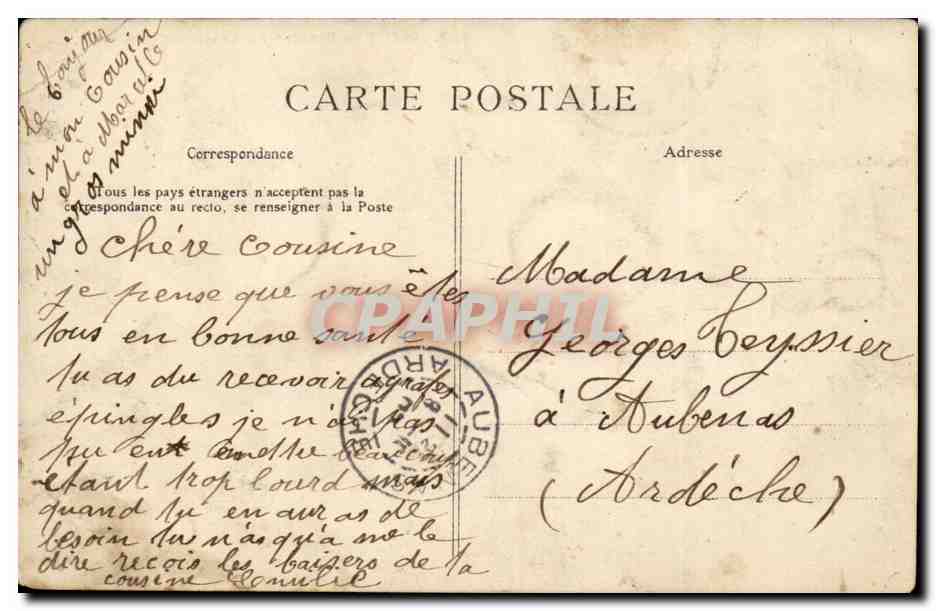 Le bonjour
à mon Cousin
et à Marcelle
un gros mimi
CARTE POSTALE
Correspondance
Adresse
Tous les pays étrangers n'acceptent pas la
correspondance au recto, se renseigner à la Poste
Chére Cousine
je pense que vous êtes
tous en bonne santé
tu as du recevoir agrafes
épingles je n'ai pas
pu en
etant trop lourd mais
quand tu en auras de
besoin tu n'as qu'a me le
dire reçois les baisers de ta
cousine Emilie
Madame
Georges Teyssier
à Aubenas
(Ardéche)
AUBENAS
ARDECHE
CPAPHIL